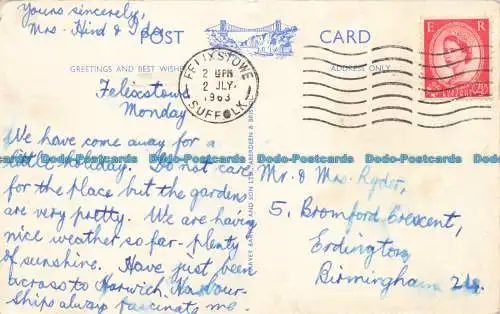 Yours sincerely,
Mrs. Hind &
POST CARD
GREETINGS AND BEST WISHES
ADDRESS ONLY
FELIXSTOWE
2 PM
2 JLY
1963
SUFFOLK
E R
Felixstowe
Monday
We have come away for a
little holiday. Do not care
for the place but the gardens
are very pretty. We are having
nice weather so far - plenty
of sunshine. Have just been
across to Harwich Harbour -
Ships always fascinate me.
Mr. & Mrs. Ryder,
5, Bromford Crescent,
Erdington,
Birmingham 24.
Dodo-Postcards Dodo-Postcards Dodo-Postcards Dodo-Postcards Dodo-Postcards